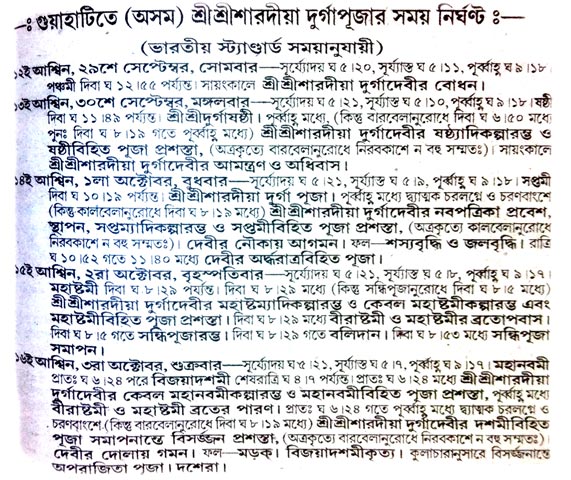 —ঃ গুয়াহাটিতে (অসম) শ্রীশ্রীশারদীয়া দুর্গাপূজার সময় নির্ঘণ্ট ঃ—
(ভারতীয় স্ট্যাণ্ডার্ড সময়ানুযায়ী)
১২ই আশ্বিন, ২৯শে সেপ্টেম্বর, সোমবার—সূর্য্যোদয় ঘ ৫।২০, সূর্য্যাস্ত ঘ ৫।১১, পূর্ব্বাহ্ণ ঘ ৯।১৮।
পঞ্চমী দিবা ঘ ১২।৫৫ পর্য্যন্ত। সায়ংকালে শ্রীশ্রীশারদীয়া দুর্গাদেবীর বোধন।
১৩ই আশ্বিন, ৩০শে সেপ্টেম্বর, মঙ্গলবার—সূর্য্যোদয় ঘ ৫।২১, সূর্য্যাস্ত ঘ ৫।১০, পূর্ব্বাহ্ণ ঘ ৯।১৮। ষষ্ঠী
দিবা ঘ ১১।৪৯ পর্য্যন্ত। শ্রীশ্রীদুর্গাষষ্ঠী। পূর্ব্বাহ্ণ মধ্যে, (কিন্তু বারবেলানুরোধে দিবা ঘ ৬।৫০ মধ্যে
পুনঃ দিবা ঘ ৮।১৯ গতে পূর্ব্বাহ্ণ মধ্যে) শ্রীশ্রীশারদীয়া দুর্গাদেবীর ষষ্ঠ্যাদিকল্পারম্ভ ও
ষষ্ঠীবিহিত পূজা প্রশস্তা, (অত্রকৃত্যে বারবেলানুরোধে নিরবকাশে ন বহু সম্মতঃ)। সায়ংকালে
শ্রীশ্রীশারদীয়া দুর্গাদেবীর আমন্ত্রণ ও অধিবাস।
১৪ই আশ্বিন, ১লা অক্টোবর, বুধবার—সূর্য্যোদয় ঘ ৫।২১, সূর্য্যাস্ত ঘ ৫।৯, পূর্ব্বাহ্ণ ঘ ৯।১৮। সপ্তমী
দিবা ঘ ১০।১৯ পর্য্যন্ত। শ্রীশ্রীশারদীয়া দুর্গা পূজা। পূর্ব্বাহ্ণ মধ্যে দ্ব্যাত্মক চরলগ্নে ও চরণবাংশে
(কিন্তু কালবেলানুরোধে দিবা ঘ ৮।১৯ মধ্যে) শ্রীশ্রীশারদীয়া দুর্গাদেবীর নবপত্রিকা প্রবেশ,
স্থাপন, সপ্তম্যাদিকল্পারম্ভ ও সপ্তমীবিহিত পূজা প্রশস্তা, (অত্রকৃত্যে কালবেলানুরোধে
নিরবকাশে ন বহু সম্মতঃ)। দেবীর নৌকায় আগমন। ফল—শস্যবৃদ্ধি ও জলবৃদ্ধি। রাত্রি
ঘ ১০।৫২ গতে ১১।৪০ মধ্যে দেবীর অর্দ্ধরাত্রবিহিত পূজা।
১৫ই আশ্বিন, ২রা অক্টোবর, বৃহস্পতিবার—সূর্য্যোদয় ঘ ৫।২১, সূর্য্যাস্ত ঘ ৫।৮, পূর্ব্বাহ্ণ ঘ ৯।১৭।
মহাষ্টমী দিবা ঘ ৮।২৯ পর্য্যন্ত। দিবা ঘ ৮।২৯ মধ্যে (কিন্তু সন্ধিপূজানুরোধে দিবা ঘ ৮।৫ মধ্যে)
শ্রীশ্রীশারদীয়া দুর্গাদেবীর মহাষ্টম্যাদিকল্পারম্ভ ও কেবল মহাষ্টমীকল্পারম্ভ এবং
মহাষ্টমীবিহিত পূজা প্রশস্তা। দিবা ঘ ৮।২৯ মধ্যে বীরাষ্টমী ও মহাষ্টমীর ব্রতোপবাস।
দিবা ঘ ৮।৫ গতে সন্ধিপূজারম্ভ। দিবা ঘ ৮।২৯ গতে বলিদান। দিবা ঘ ৮।৫৩ মধ্যে সন্ধিপূজা
সমাপন।
১৬ই আশ্বিন, ৩রা অক্টোবর, শুক্রবার—সূর্য্যোদয় ঘ ৫।২১, সূর্য্যাস্ত ঘ ৫।৭, পূর্ব্বাহ্ণ ঘ ৯।১৭। মহানবমী
প্রাতঃ ঘ ৬।২৪ পরে বিজয়াদশমী শেষরাত্রি ঘ ৪।৭ পর্য্যন্ত। প্রাতঃ ঘ ৬।২৪ মধ্যে শ্রীশ্রীশারদীয়া
দুর্গাদেবীর কেবল মহানবমীকল্পারম্ভ ও মহানবমীবিহিত পূজা প্রশস্তা, পূর্ব্বাহ্ণ মধ্যে
বীরাষ্টমী ও মহাষ্টমী ব্রতের পারণ। প্রাতঃ ঘ ৬।২৪ গতে পূর্ব্বাহ্ণ মধ্যে দ্ব্যাত্মক চরলগ্নে ও
চরণবাংশে (কিন্তু বারবেলানুরোধে দিবা ঘ ৮।১৯ মধ্যে) শ্রীশ্রীশারদীয়া দুর্গাদেবীর দশমীবিহিত
পূজা সমাপনান্তে বিসর্জ্জন প্রশস্তা, (অত্রকৃত্যে বারবেলানুরোধে নিরবকাশে ন বহু সম্মতঃ)।
দেবীর দোলায় গমন। ফল—মড়ক। বিজয়াদশমীকৃত্য। কুলাচারানুসারে বিসর্জ্জনান্তে
অপরাজিতা পূজা। দশেরা।